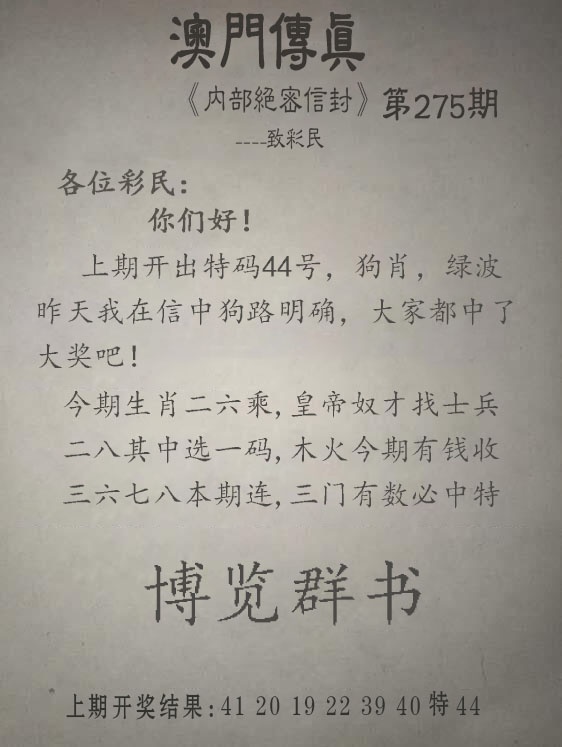 澳門傳真
《内部絕密信封》第275期
----致彩民
各位彩民：
你们好！
上期开出特码44号，狗肖，绿波
昨天我在信中狗路明确，大家都中了
大奖吧！
今期生肖二六乘,皇帝奴才找士兵
二八其中选一码,木火今期有钱收
三六七八本期连,三门有数必中特
博览群书
上期开奖结果:41 20 19 22 39 40 特 44